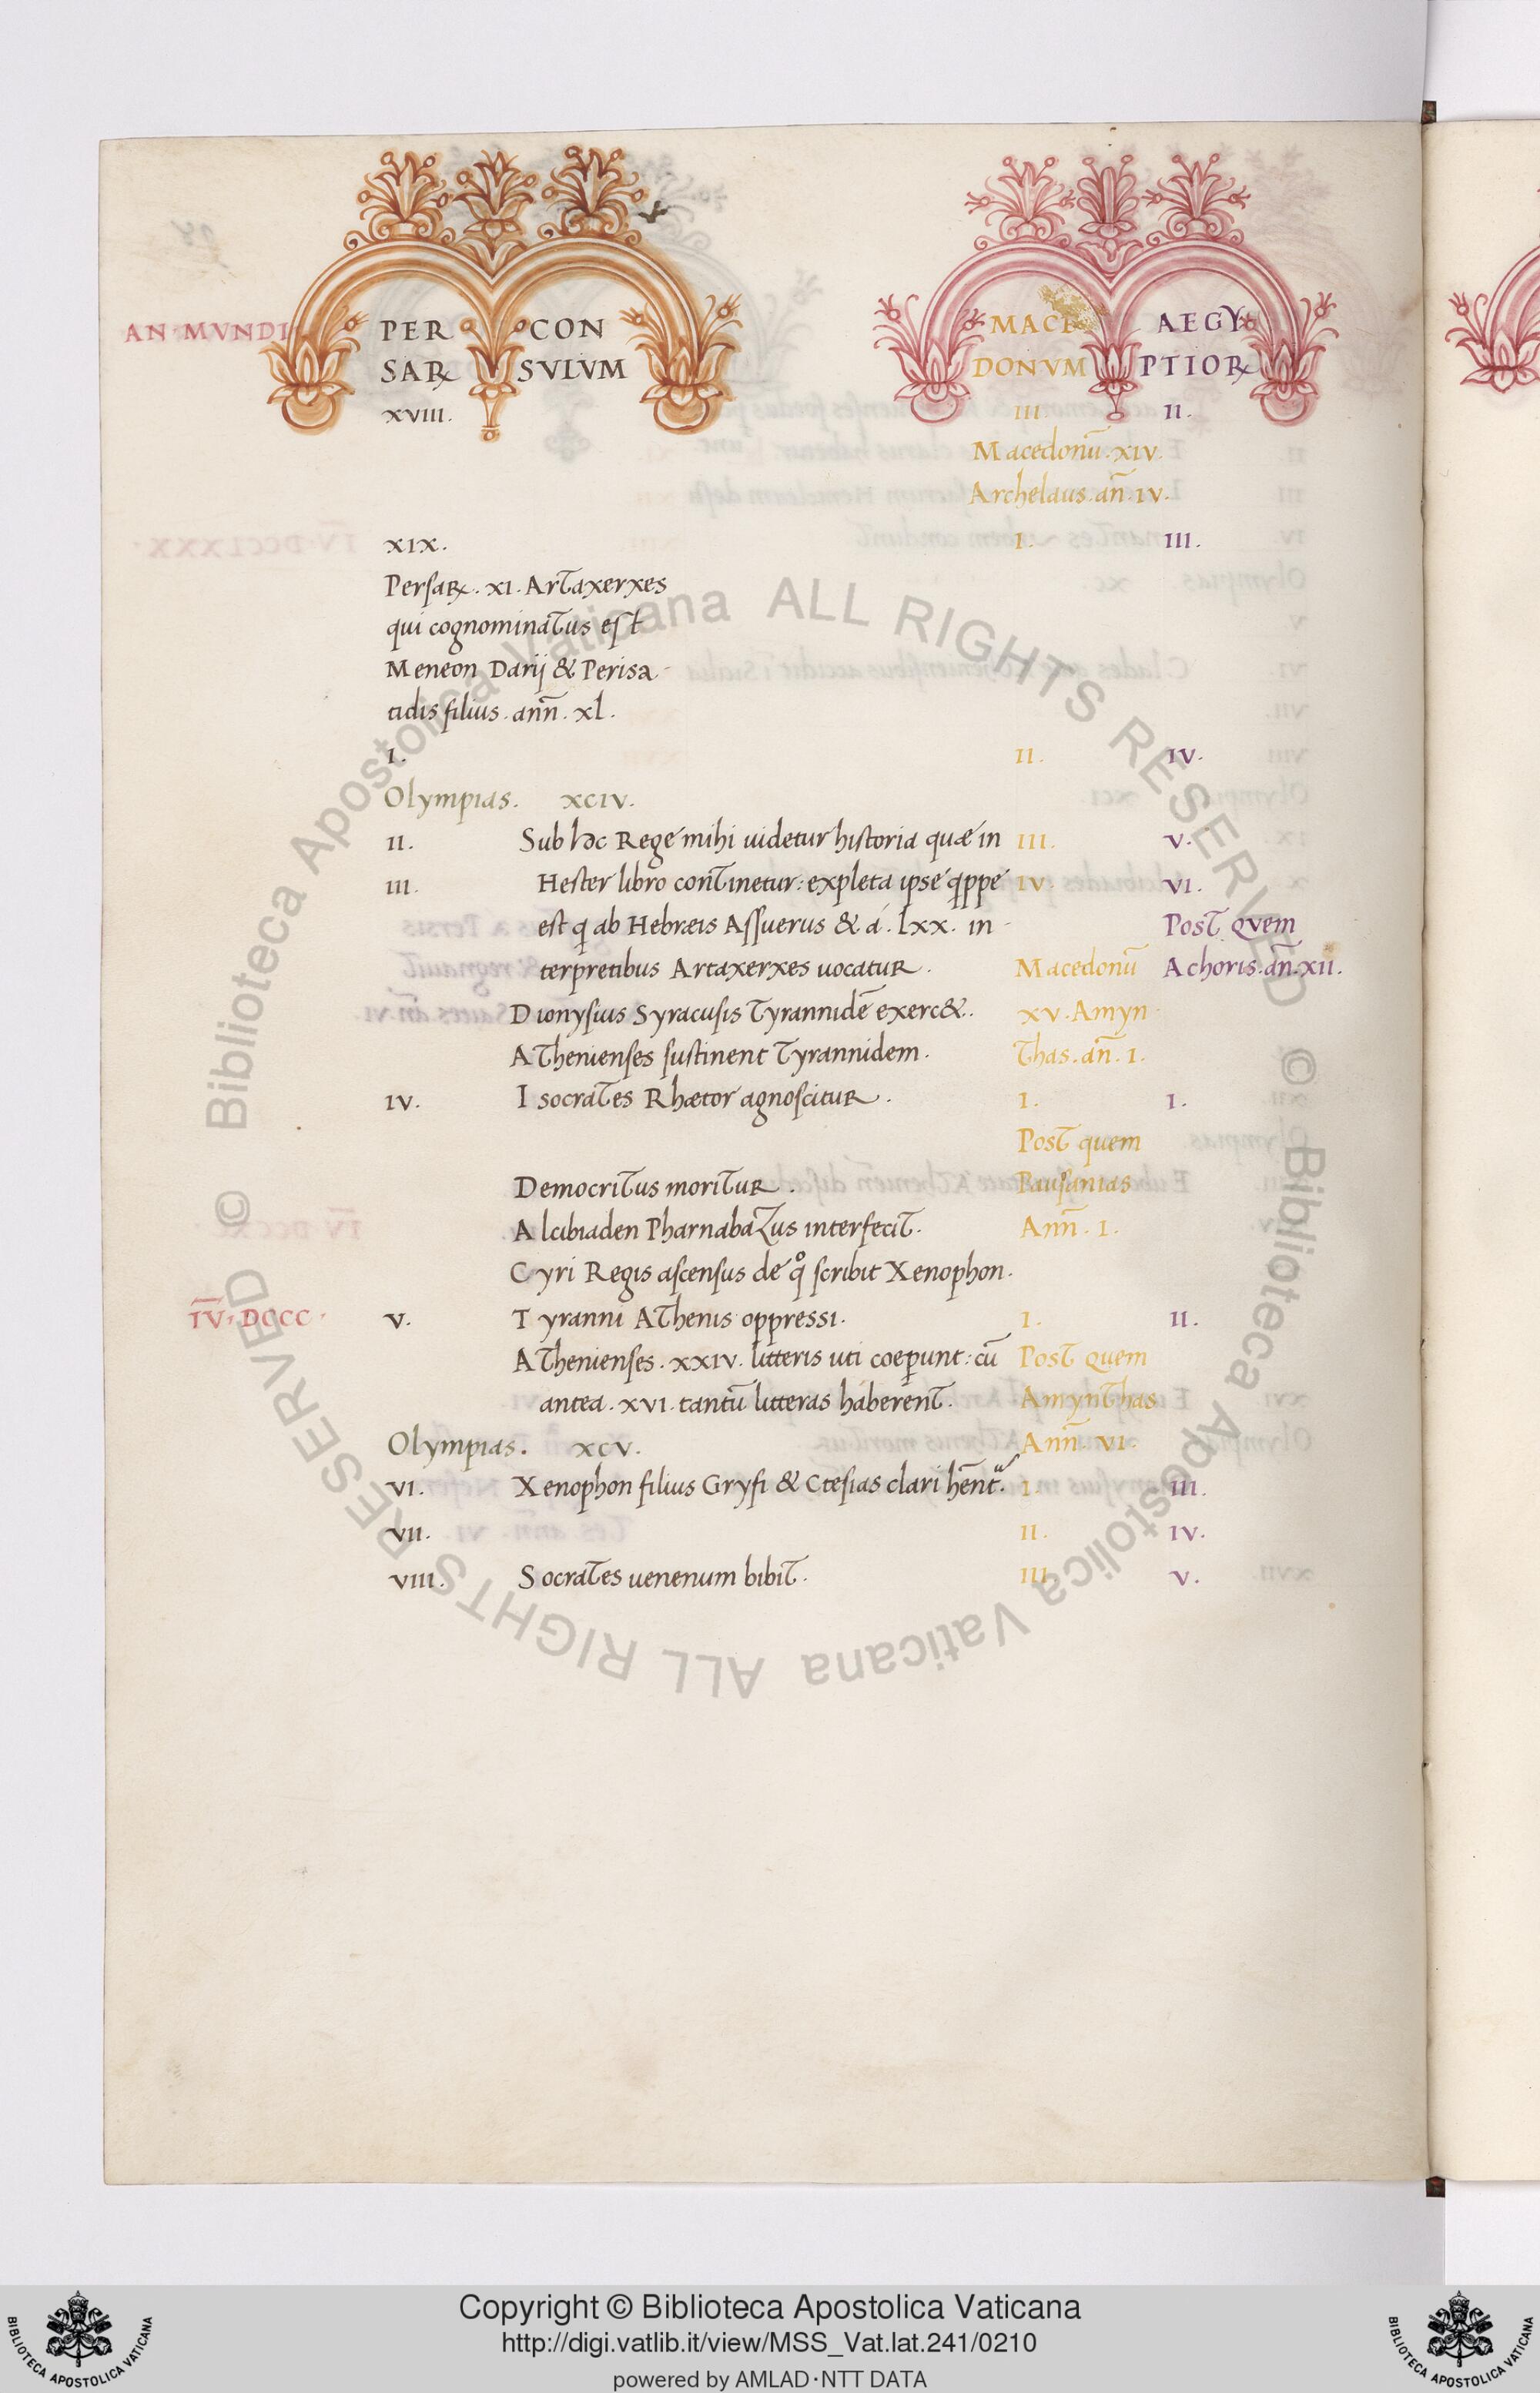 AN·MVNDI PER CON MACE AEGY
SAR℞ SVLVM DONVM PTIOR℞
XVIII. III. II.
Macedonū.XIV.
Archelaus.an̄.IV.
XIX. I. III.
Persa℞.XI.Artaxerxes
qui cognominatus est
Meneon Darij & Perisa
tidis filius.ann̄.xl.
I. II. IV.
Olympias. XCIV.
II. Sub hoc Rege mihi uidetur historia quæ in III. V.
III. Hester libro continetur: expleta ipse qppe IV. VI.
est q ab Hebræis Assuerus & a .lxx. in Post Qvem
terpretibus Artaxerxes uocatur. Macedonū Achoris.an̄.XII.
Dionysius Syracusis Tyrannidē exerc&. XV.Amyn
Athenienses sustinent Tyrannidem. thas.an̄.I.
IV. Isocrates Rhætor agnoscitur. I. I.
Post quem
Democritus moritur. Pausanias
Alcibiaden Pharnabazus interfecit. Ann̄.I.
Cyri Regis ascensus de qo scribit Xenophon.
IV·DCCCC· V. Tyranni Athenis oppressi. I. II.
Athenienses.XXIV.litteris uti coeperunt: cū Post Quem
antea.XVI.tantū litteras haberent. Amynthas
Olympias. XCV. Ann̄.VI.
VI. Xenophon filius Gryfi & Ctesias clari hēnt. I. III.
VII. II. IV.
VIII. Socrates uenenum bibit. III. V.
© Biblioteca Apostolica Vaticana ALL RIGHTS RESERVED
© Biblioteca Apostolica Vaticana ALL RIGHTS RESERVED
Copyright © Biblioteca Apostolica Vaticana
http://digi.vatlib.it/view/MSS_Vat.lat.241/0210
powered by AMLAD·NTT DATA
BIBLIOTECA APOSTOLICA VATICANA
BIBLIOTECA APOSTOLICA VATICANA